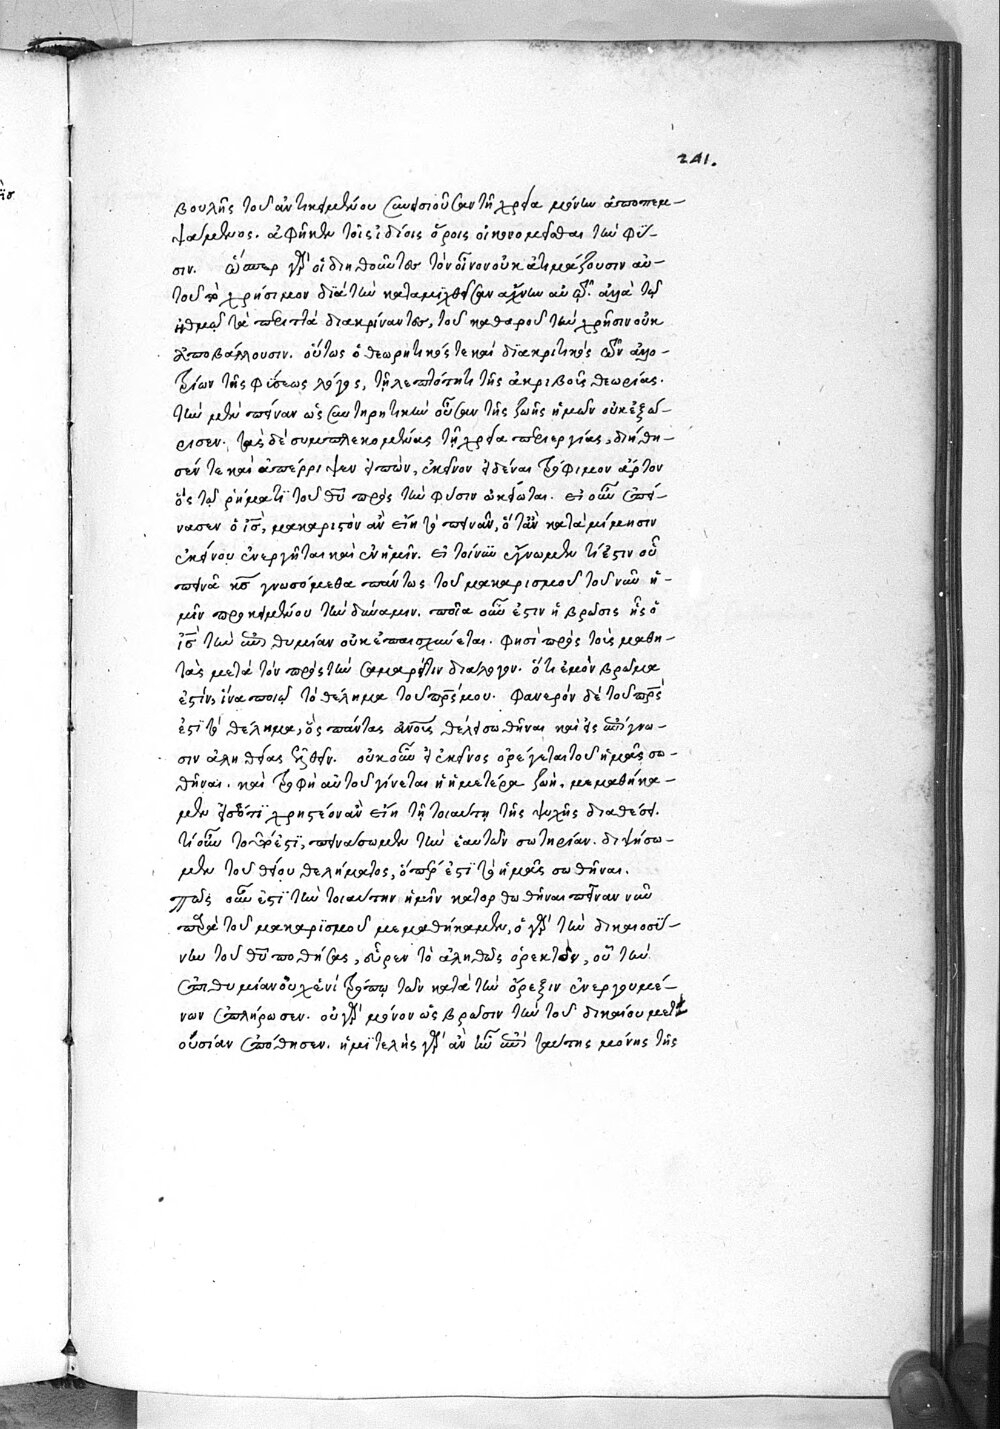 241.
βουλῆς τοῦ ἀντικειμένου συνεισιοῦσαν τῇ χρεία μόνων ἀποπεμ-
ψάμενος. ἀφῆκεν τοῖς ἰδίοις ὅροις οἰκονομεῖσθαι τὴν φύ-
σιν. ὥσπερ γὰρ οἱ διηθοῦντες τὸν οἶνον οὐκ ἀτιμάζουσιν αὐ-
τοῦ τὸ χρήσιμον διὰ τὴν καταμιχθεῖσαν ἄχνην αὐτῶ· ἀλλὰ τῷ
ἠθμῷ τὰ περιττὰ διακρίναντες, τοῦ καθαροῦ τὴν χρῆσιν οὐκ
ἀποβάλλουσιν. οὕτως ὁ θεωρητικός τε καὶ διακριτικὸς τῶν ἀλλο-
τρίων τῆς φύσεως λόγος, τῇ λεπτότητι τῆς ἀκριβοῦς θεωρίας.
τὴν μὲν πεῖναν ὡς συντηρητικὴν οὖσαν τῆς ζωῆς ἡμῶν οὐκ ἐξώ-
ρισεν. τὰς δὲ συμπλεκομένας τῇ χρεία περιεργίας, διήθη-
σέν τε καὶ ἀπέρριψεν εἰπὼν, ἐκεῖνον εἰδέναι τρόφιμον ἄρτον
ὃς τῷ ῥήματι τοῦ θῦ πρὸς τὴν φύσιν ὠκείωται. εἰ οὖν ἐπεί-
νασεν ὁ ἰς, μακαριστὸν ἂν εἴη τὸ πεινᾶν, ὅταν κατὰ μίμησιν
ἐκείνου ἐνεργῆται καὶ ἐν ἡμῖν. εἰ τοίνυν ἔγνωμεν τί ἐστιν οὗ
πεινᾶ κς γνωσόμεθα πάντως τοῦ μακαρισμοῦ τοῦ νῦν ἡ-
μῖν προκειμένου τὴν δύναμιν. ποῖα οὖν ἐστιν ἡ βρῶσις ἧς ὁ
ἰς τὴν ἐπιθυμίαν οὐκ ἐπαισχύνεται. φησὶ πρὸς τοὺς μαθη-
τὰς μετὰ τὸν πρὸς τὴν σαμαρεῖτιν διάλογον. ὅτι ἐμὸν βρῶμα
ἐστὶν, ἵνα ποιῶ τὸ θέλημα τοῦ πρς μου. φανερὸν δὲ τοῦ πρς
ἐστὶ τὸ θέλημα, ὃς πάντας ἀνους θέλει σωθῆναι καὶ εἰς ἐπίγνω-
σιν ἀληθείας ἐλθεῖν. οὐκοῦν εἰ ἐκεῖνος ὀρέγεται τοῦ ἡμᾶς σω-
θῆναι. καὶ τροφὴ αὐτοῦ γίνεται ἡ ἡμετέρα ζωή. μεμαθήκα-
μεν εἰς ὅ,τι χρηστέον ἂν εἴη τῇ τοιαύτῃ τῆς ψυχῆς διαθέσει.
τί οὖν τοῦτό ἐστι, πεινάσωμεν τὴν ἑαυτῶν σωτηρίαν. διψήσω-
μεν τοῦ θείου θελήματος, ὅπερ ἐστὶ τὸ ἡμᾶς σωθῆναι.
πῶς οὖν ἐστι τὴν τοιαύτην ἡμῖν κατορθωθῆναι πεῖναν νῦν
παρὰ τοῦ μακαρισμοῦ μεμαθήκαμεν, ὁ γὰρ τὴν δικαιοσύ-
νην τοῦ θῦ ποθήσας, εὗρεν τὸ ἀληθῶς ὀρεκτὸν, οὗ τὴν
ἐπιθυμίαν οὐχ ἑνὶ τρόπῳ τῶν κατὰ τὴν ὄρεξιν ἐνεργουμέ-
νων ἐπλήρωσεν. οὐ γὰρ μόνον ὡς βρῶσιν τὴν τοῦ δικαίου μετ
ουσίαν ἐπόθησεν. ἡμιτελὴς γὰρ ἂν ἦν ἐπὶ ταύτης μόνης τῆς